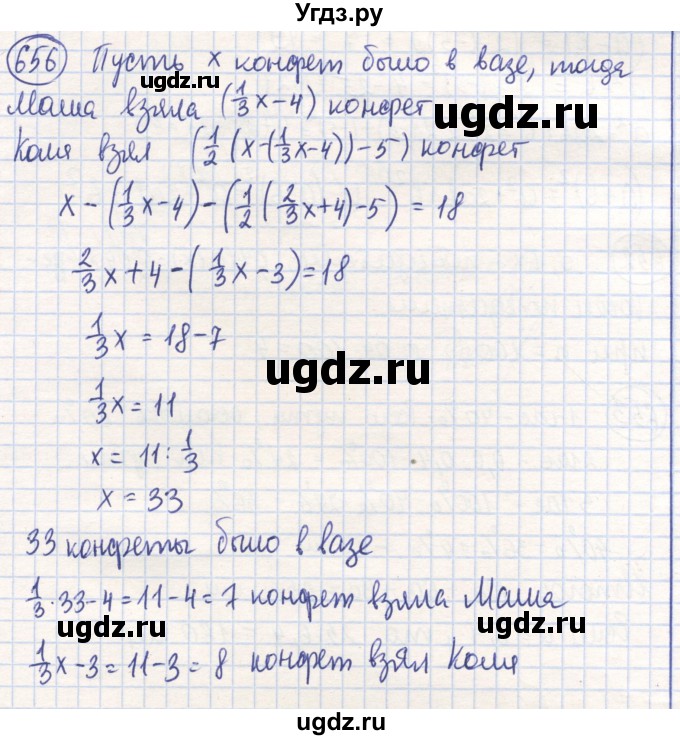 Угдз.ру
656 Пусть x конфет было в вазе, тогда
Маша взяла (1/3 x - 4) конфет
ugdz.ru
Коля взял (1/2 (x - (1/3 x - 4)) - 5) конфет
x - (1/3 x - 4) - (1/2 (2/3 x + 4) - 5) = 18
2/3 x + 4 - (1/3 x - 3) = 18
1/3 x = 18 - 7
ugdz.ru
1/3 x = 11
x = 11 : 1/3
x = 33
33 конфеты было в вазе
1/3 · 33 - 4 = 11 - 4 = 7 конфет взяла Маша
ugdz.ru
ugdz.ru
1/3 x - 3 = 11 - 3 = 8 конфет взял Коля
ugdz.ru